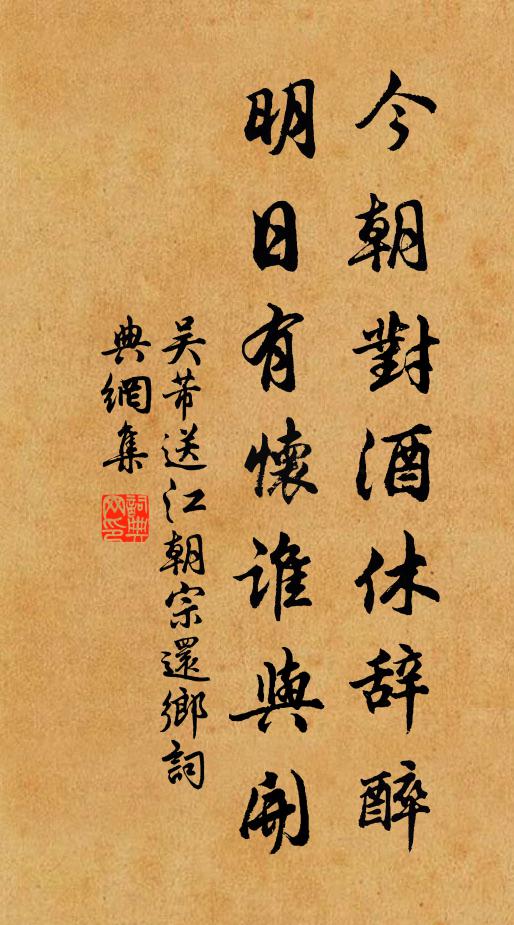 今朝對酒休辞醉
明日有懷誰與開
吴芾送江朝宗還鄉詞
典網集
詞典
網印